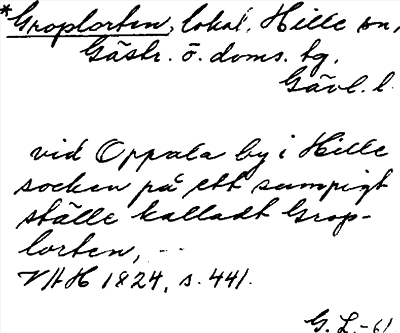 *Groplorten, lokal, Hille sn,
Gästr. ö. doms. tg,
Gävl. l.
vid Oppala by i Hille
socken på ett sumpigt
ställe kalladt Grop-
lorten, --
VAH 1824, s. 441.
G. L. -61